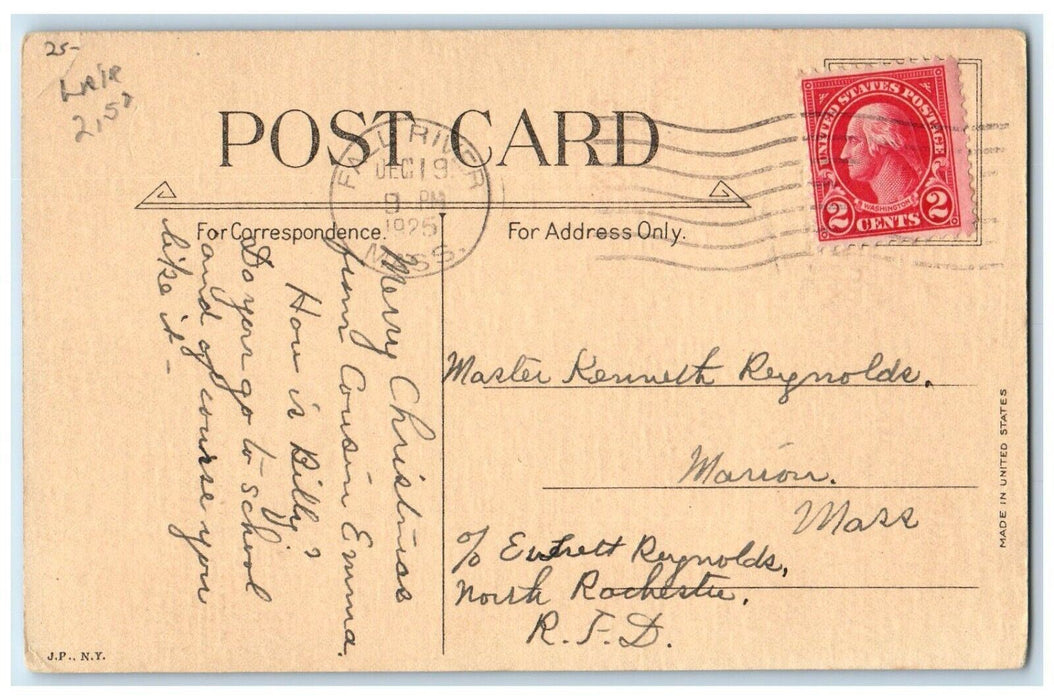 25-
2,50
POST CARD
FALL RIVER
DEC 19
9 PM
1925
MASS.
UNITED STATES POSTAGE
WASHINGTON
2 CENTS 2
For Correspondence.
For Address Only.
Merry Christmas
from Cousin Emma.
How is Billy?
Do you go to school
and of course you
like it -
Master Kenneth Reynolds.
Marion.
Mass
c/o Everett Reynolds,
North Rochester.
R.F.D.
MADE IN UNITED STATES
J.P., N.Y.